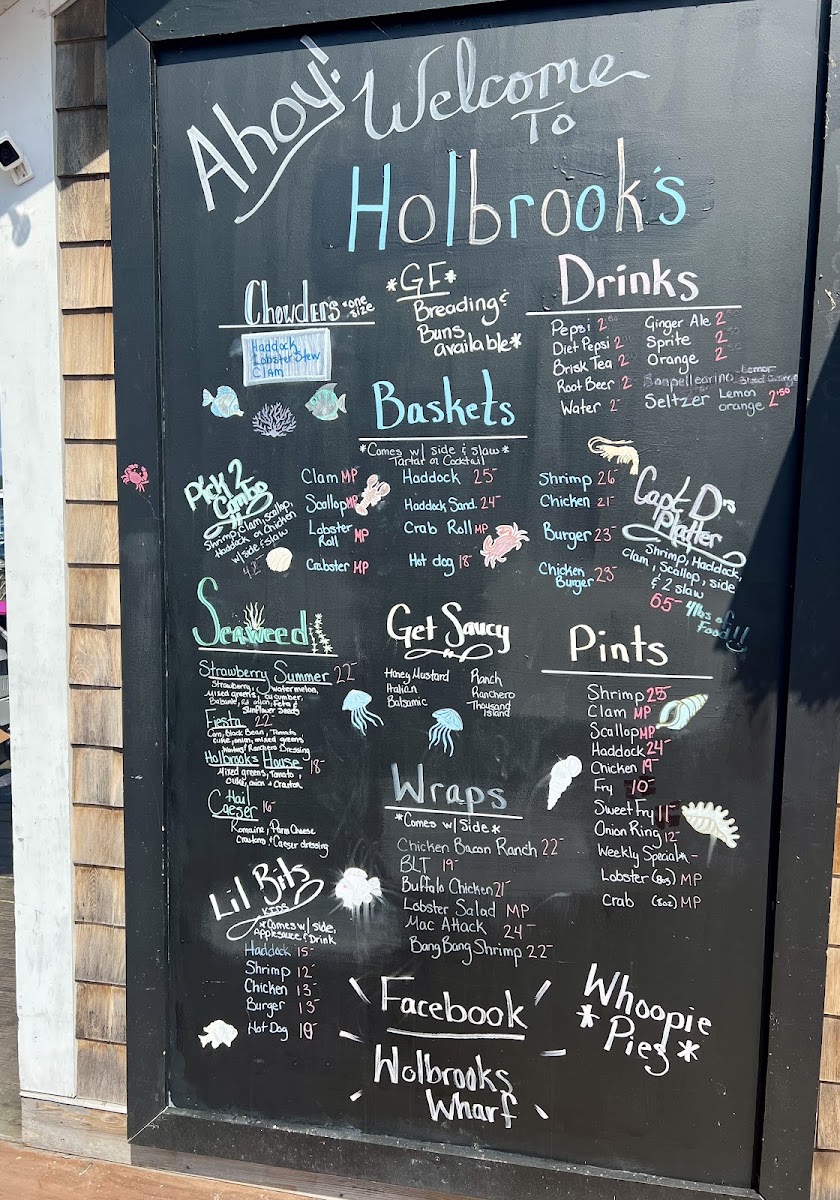 Ahoy! Welcome
To
Holbrook's
Chowders *one size
Haddock
Lobster Stew
Clam
*GF*
Breading &
Buns
available*
Drinks
Pepsi 2.50
Diet Pepsi 2
Brisk Tea 2
Root Beer 2
Water 2-
Ginger Ale 2.50
Sprite 2.50
Orange 2.50
Sanpellegrino Lemon
Blood Orange
Seltzer Lemon
orange 2.50
Baskets
*Comes w/ side & slaw*
Tartar or Cocktail
Pick 2
Combo
Shrimp, Clam, Scallop,
Haddock or Chicken
w/ side & slaw
42-
Clam MP
Scallop MP
Lobster
Roll MP
Crabster MP
Haddock 25-
Haddock Sand. 24-
Crab Roll MP
Hot dog 18-
Shrimp 26-
Chicken 21-
Burger 23-
Chicken
Burger 23-
Capt D's
Platter
Shrimp, Haddock,
Clam, Scallop, side
& 2 slaw
65- 4lbs of
Food!!
Seaweed
Strawberry Summer 22-
Strawberry, watermelon,
Mixed greens, cucumber,
Balsamic, Rd onion, Feta &
Sunflower Seeds
Fiesta 22-
Corn, Black Bean, Tomato
cuke, onion, mixed greens
Wontons, Ranchero Dressing
Holbrook's House 18-
Mixed greens, Tomato,
cuke, onion & Crouton
Hail
Caeser 16-
Romaine, Parm Cheese
Croutons & Caesar dressing
Get Saucy
Honey Mustard
Italian
Balsamic
Ranch
Ranchero
Thousand
Island
Pints
Shrimp 25-
Clam MP
Scallop MP
Haddock 24-
Chicken 19-
Fry 10-
Sweet Fry 11-
Onion Ring 12-
Weekly Special* -
Lobster (8oz) MP
Crab (8oz) MP
Wraps
*Comes w/ Side*
Chicken Bacon Ranch 22-
BLT 19-
Buffalo Chicken 21-
Lobster Salad MP
Mac Attack 24-
Bang Bang Shrimp 22-
Lil Bits
KIDS
*Comes w/ side,
Applesauce & Drink
Haddock 15-
Shrimp 12-
Chicken 13-
Burger 13-
Hot Dog 10-
Facebook
Holbrooks
Wharf
Whoopie
*Pies*